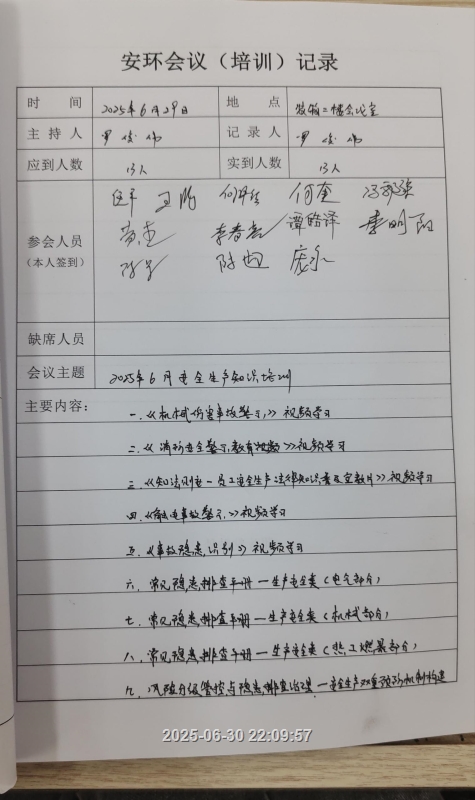 安环会议（培训）记录
时 间 2025年6月29日 地 点 二幢会议室
主 持 人 罗 记 录 人 罗
应到人数 13人 实到人数 13人
何奎
参会人员 李春 谭皓译 秦明阳
（本人签到） 陈 庞
缺席人员
会议主题 2025年6月安全生产知识培训
主要内容：
一.《机械伤害事故警示》视频学习
二.《消防安全警示教育视频》视频学习
三.《知法则安-员工安全生产法律知识普及宣教片》视频学习
四.《触电事故警示》视频学习
五.《事故隐患识别》视频学习
六.常见隐患排查手册—生产安全类（电气部分）
七.常见隐患排查手册—生产安全类（机械部分）
八.常见隐患排查手册—生产安全类（热工燃爆部分）
九.风险分级管控与隐患排查治理—安全生产双重预防机制构建
2025-06-30 22:09:57